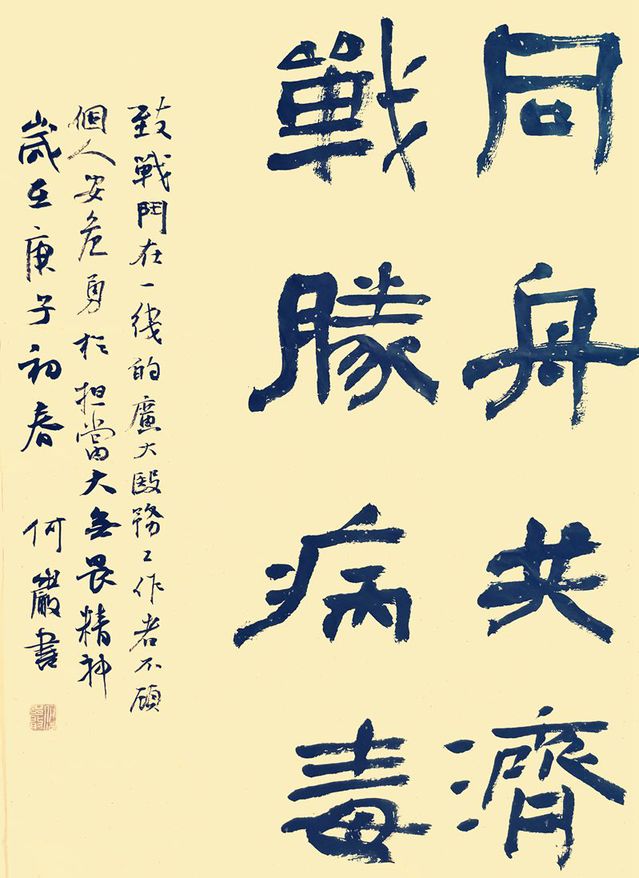 同舟共濟
戰勝病毒
致戰鬥在一綫的廣大醫務工作者不顧
個人安危勇於担當大無畏精神
歲在庚子初春 何巖書